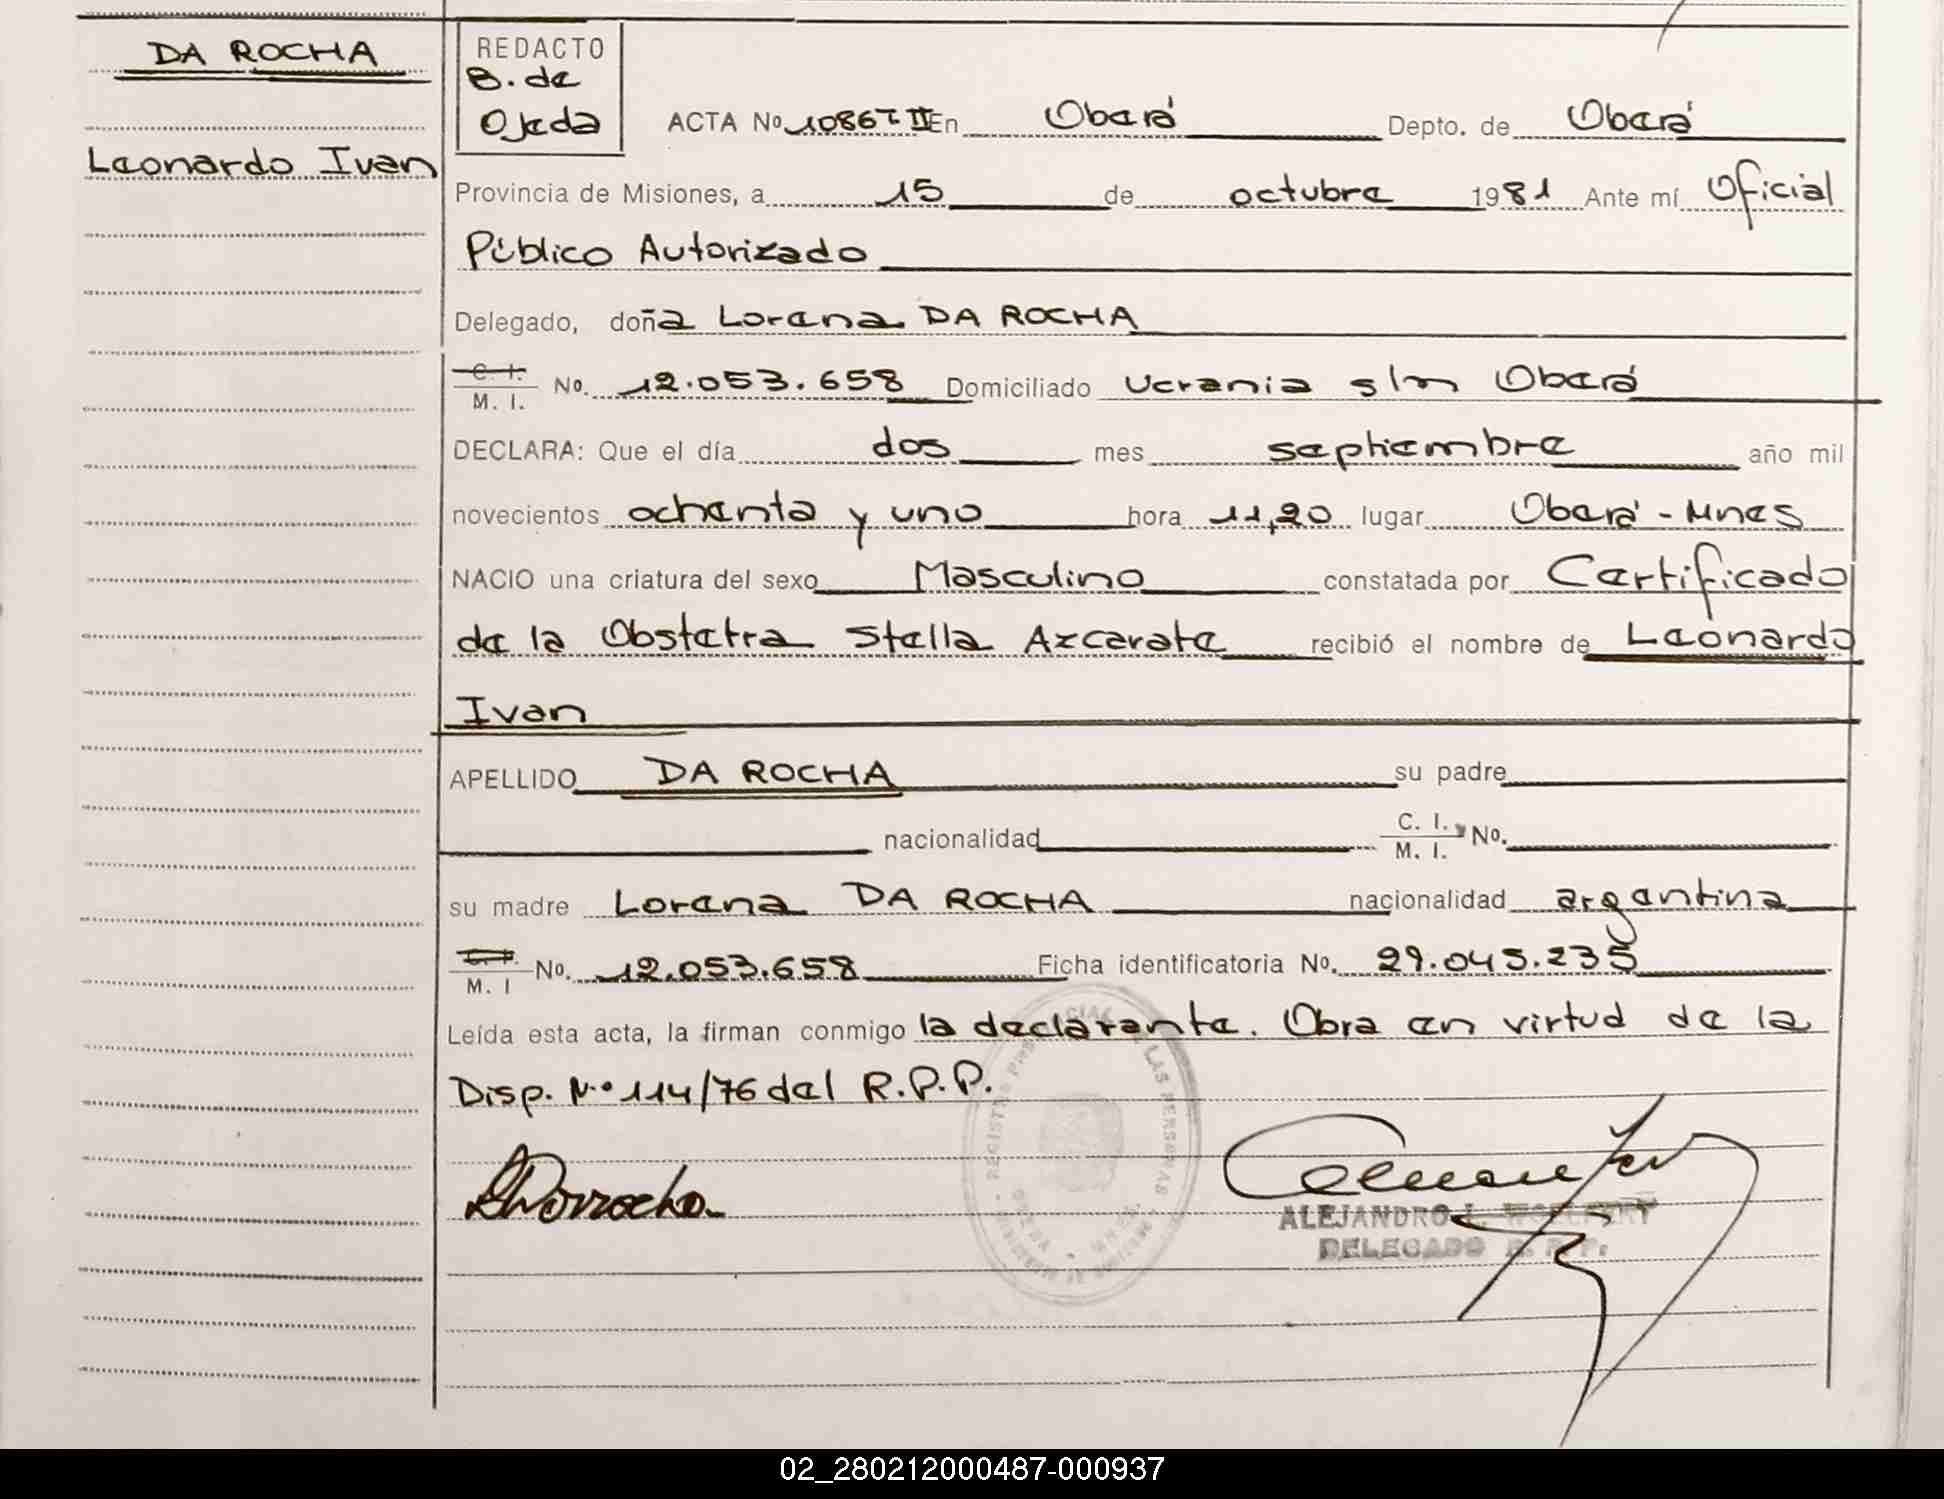 DA ROCHA
Leonardo Ivan
REDACTO
B. de
Ojeda
ACTA No 1086 T II En Oberá Depto. de Oberá
Provincia de Misiones, a 15 de octubre 1981 Ante mí Oficial
Público Autorizado
Delegado, doña Lorena DA ROCHA
C. I.
M. I. No. 12.053.658 Domiciliado Ucrania s/n Oberá
DECLARA: Que el día dos mes septiembre año mil
novecientos ochenta y uno hora 11,20 lugar Oberá - Mnes
NACIO una criatura del sexo Masculino constatada por Certificado
de la Obstetra Stella Azcarate recibió el nombre de Leonardo
Ivan
APELLIDO DA ROCHA su padre
nacionalidad C. I. M. I. No.
su madre Lorena DA ROCHA nacionalidad argentina
M. I No. 12.053.658 Ficha identificatoria No. 29.045.235
Leída esta acta, la firman conmigo la declarante. Obra en virtud de la
Disp. Nº 114/76 del R.P.P.
REGISTRO PROVINCIAL DE LAS PERSONAS
ALEJANDRO
DELEGADO R. P. P.
02_280212000487-000937